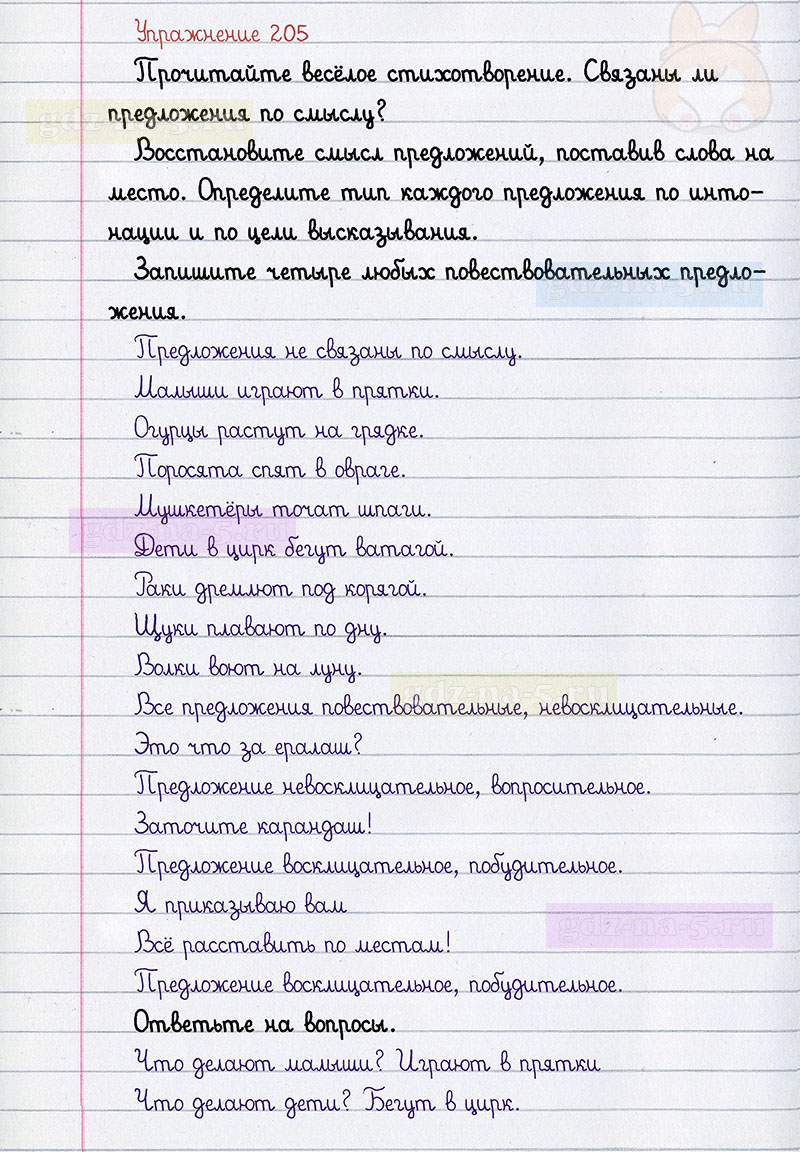 Упражнение 205
Прочитайте весёлое стихотворение. Связаны ли
предложения по смыслу?
gdz-na-5.ru
Восстановите смысл предложений, поставив слова на
место. Определите тип каждого предложения по инто-
нации и по цели высказывания.
Запишите четыре любых повествовательных предло-
gdz-na-5.ru
жения.
Предложения не связаны по смыслу.
Малыши играют в прятки.
Огурцы растут на грядке.
Поросята спят в овраге.
Мушкетёры точат шпаги.
gdz-na-5.ru
Дети в цирк бегут ватагой.
Раки дремлют под корягой.
Щуки плавают по дну.
Волки воют на луну.
gdz-na-5.ru
Все предложения повествовательные, невосклицательные.
Это что за ералаш?
Предложение невосклицательное, вопросительное.
Заточите карандаш!
Предложение восклицательное, побудительное.
Я приказываю вам
gdz-na-5.ru
Всё расставить по местам!
Предложение восклицательное, побудительное.
Ответьте на вопросы.
Что делают малыши? Играют в прятки
Что делают дети? Бегут в цирк.